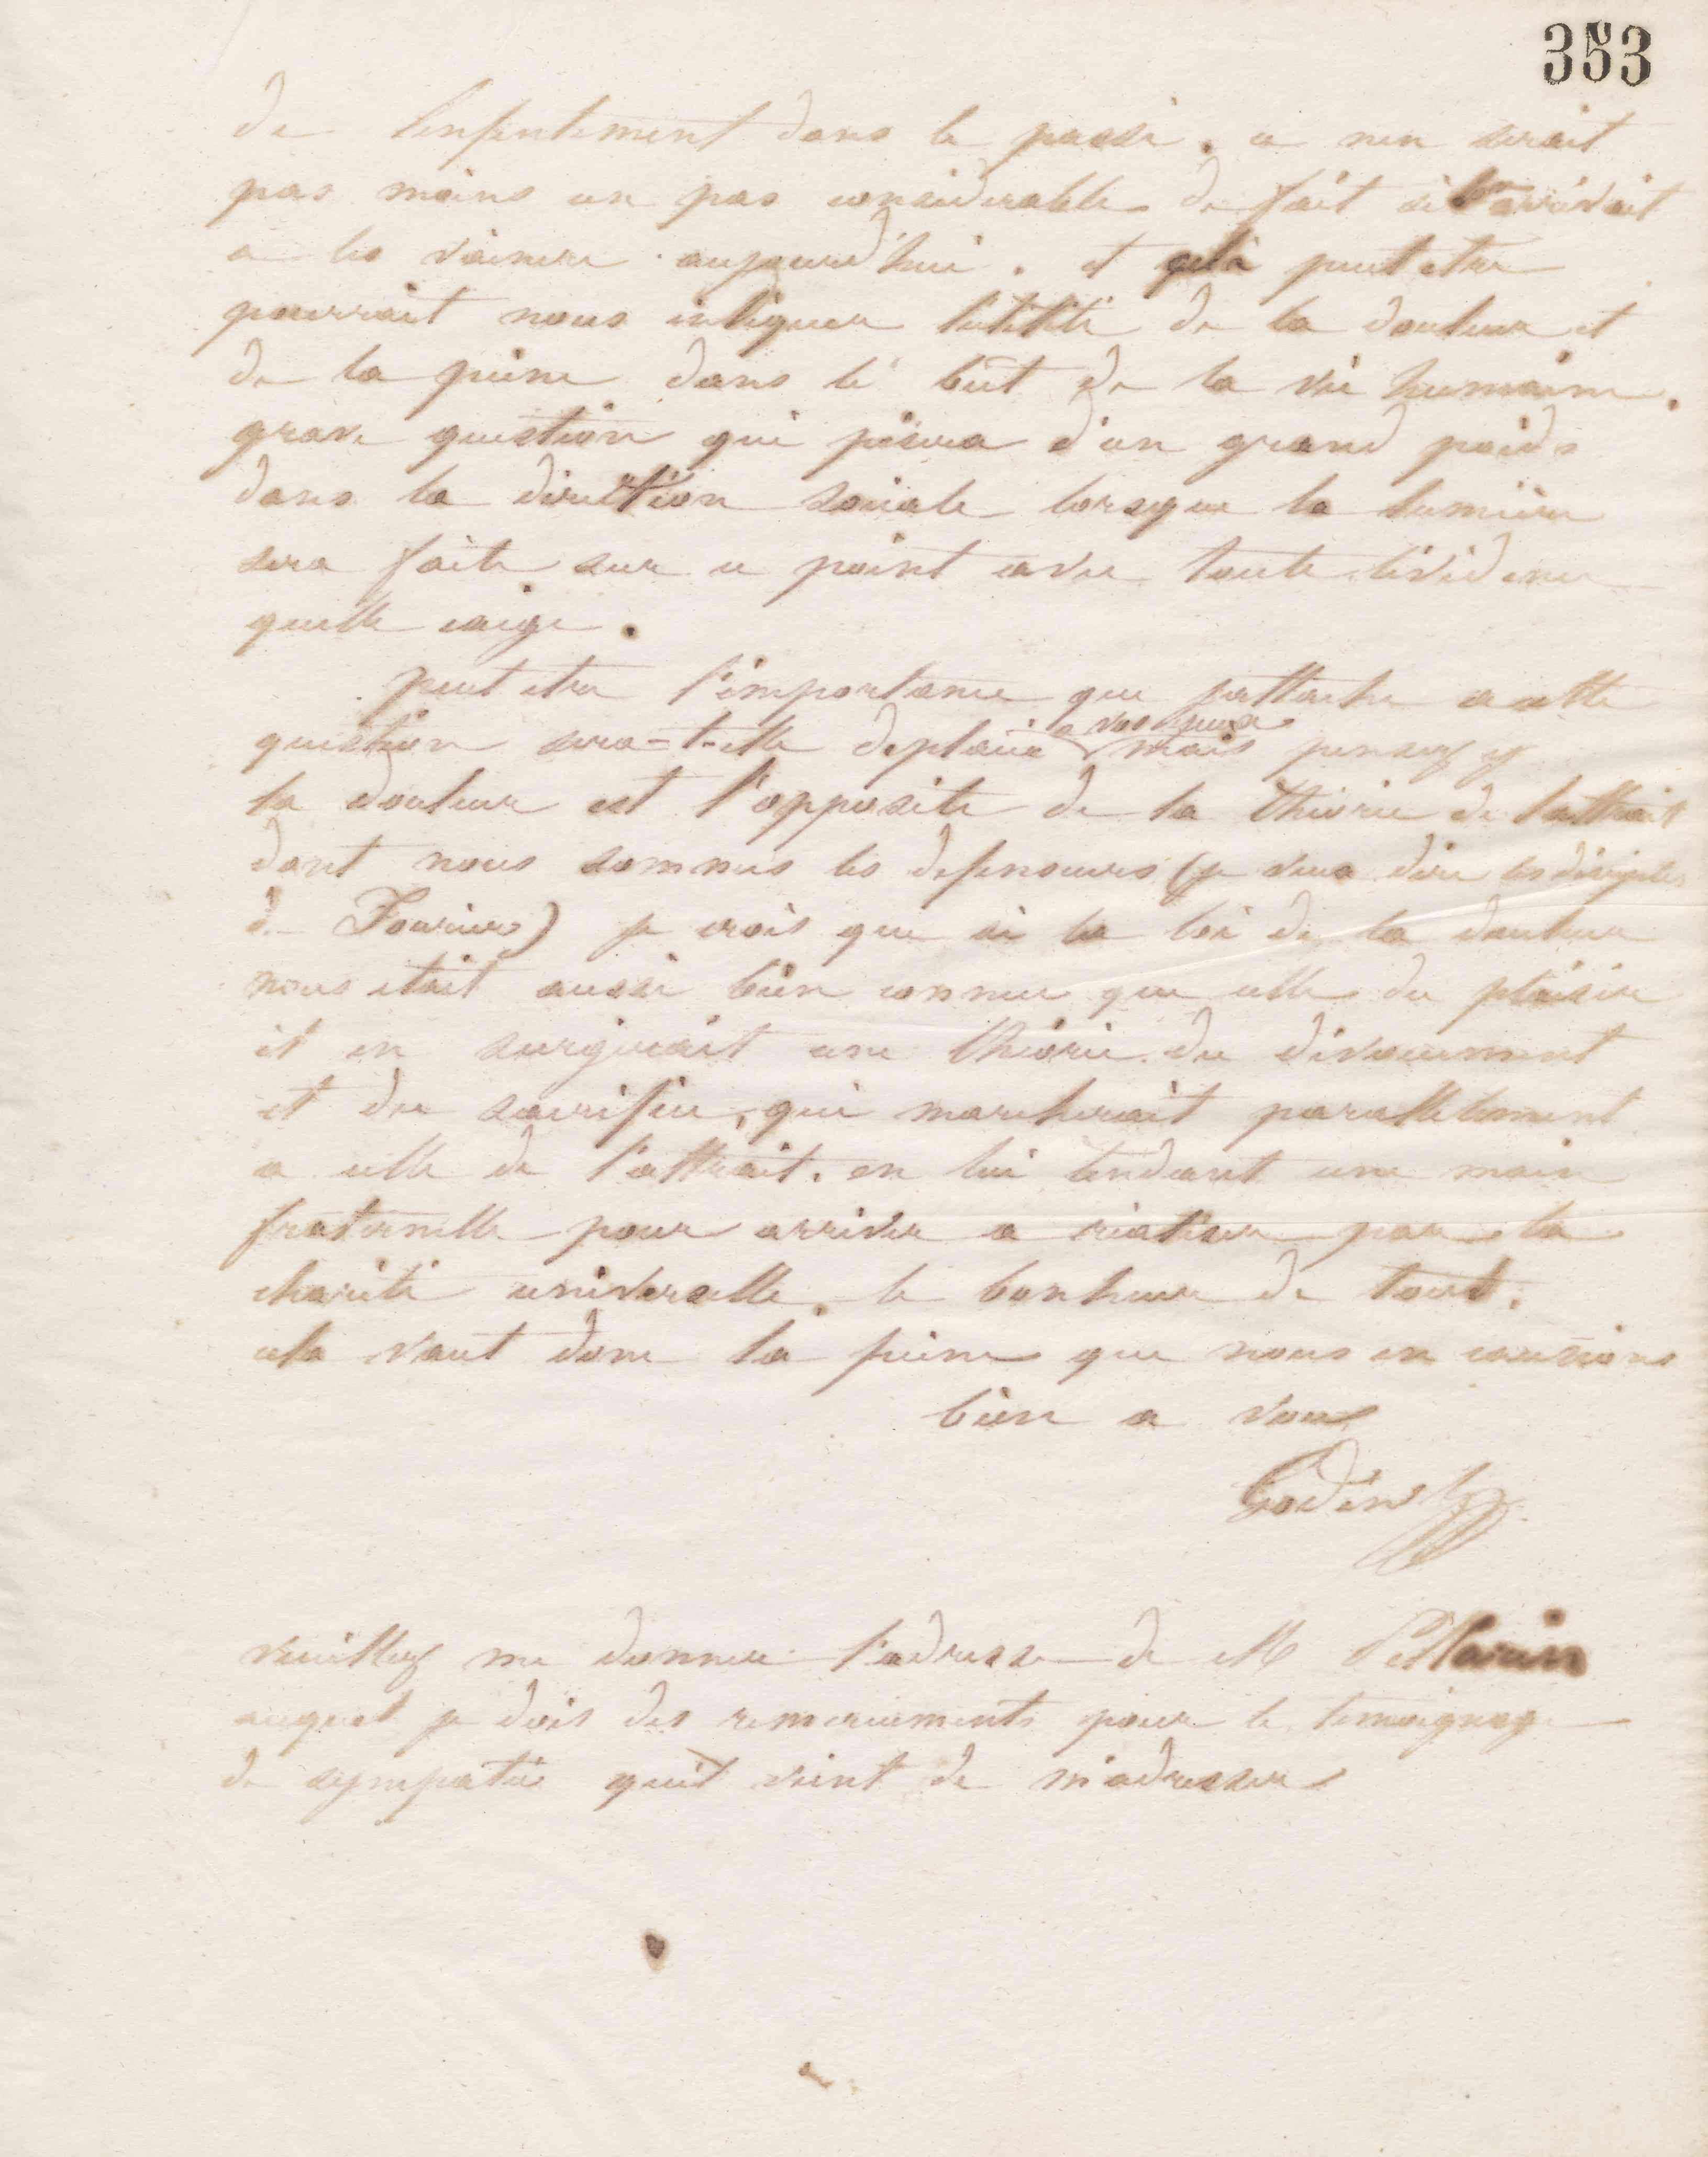 353
de lenfentement dans le passé. ce nen serait
pas moins un pas considerable de fait si l'on arrivait
a les vaincre aujourd'hui. et celà peut etre
pourrait nous indiquer lutilité de la douleur et
de la peine dans le but de la vie humaine.
grave question qui pésera d'un grand poids
dans la diréction sociale lorsque la lumière
sera faite sur ce point avec toute lévidence
quelle exige.
peut etre l'importance que jattache a cette
question sera-t-elle deplacée a vos yeux mais pensez y
la douleur est l'opposite de la théorie de lattrait
dont nous sommes les defenseurs (je veux dire les disciples
de Fourier) je crois que si la loi de la douleur
nous était aussi bien connue que celle du plaisir
il en surgirait une théorie du dévouement
et du sacrifice, qui marcherait parallelement
a celle de l'attrait. en lui tendant une main
fraternelle pour arriver a réaliser par la
charité universelle. le bonheur de tous.
cela vaut donc la peine que nous en causions
bien a vous
Godin
veuillez me donner l'adresse de M Pellarin
auquel je dois des remerciements pour le temoignage
de sympatie qu'il vient de m'adresser